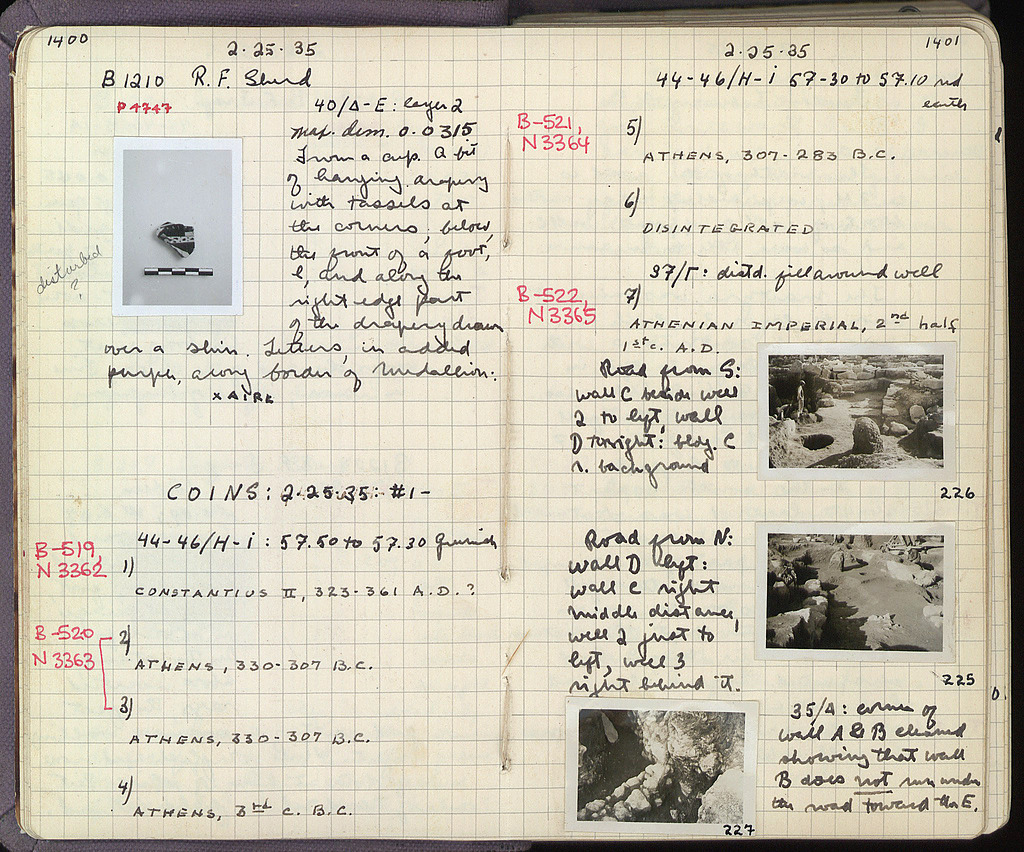 1400
2·25·35
B 1210 R.F. Sherd
P 4747
40/Δ-E: layer 2
max. dim. 0.0315
From a cup. A bit
of hanging drapery
with tassels at
the corners; below,
the front of a foot,
l, and along the
right edge part
of the drapery drawn
over a shin. Letters, in added
purple, along border of medallion:
ΧΑΙΡΕ
disturbed
?
COINS: 2·25·35: #1-
44-46/H-i: 57.50 to 57.30 Greenish
B-519,
N 3362
1)
CONSTANTIUS II, 323-361 A.D.?
B-520
N 3363
2)
ATHENS, 330-307 B.C.
3)
ATHENS, 330-307 B.C.
4)
ATHENS, 3rd C. B.C.
1401
2·25·35
44-46/H-i 57-30 to 57.10 red
earth
B-521,
N 3364
5)
ATHENS, 307-283 B.C.
6)
DISINTEGRATED
37/Γ: distd. fill around well
B-522,
N3365
7)
ATHENIAN IMPERIAL, 2nd half
1st c. A.D.
Road from S:
wall C beside well
2 to left, wall
D to right: bldg. C
r. background
226
Road from N:
wall D left:
wall C right
middle distance,
well 2 just to
left, well 3
right behind it.
225
35/A: corner of
wall A & B cleaned
showing that wall
B does not run under
the road toward the E.
227